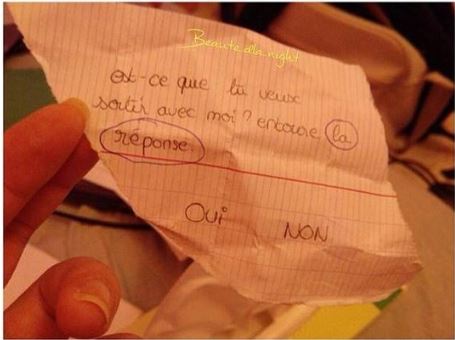 Beauté dla night
est-ce que tu veux
sortir avec moi? entoure la
réponse.
OUI NON